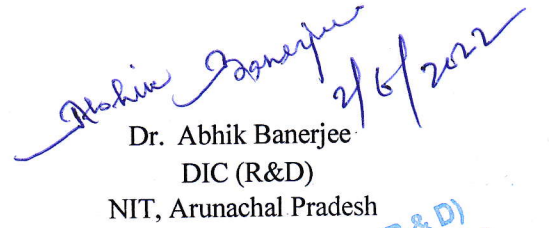 Abhik Banerjee 2/6/2022
Dr. Abhik Banerjee
DIC (R&D)
NIT, Arunachal Pradesh
& D)